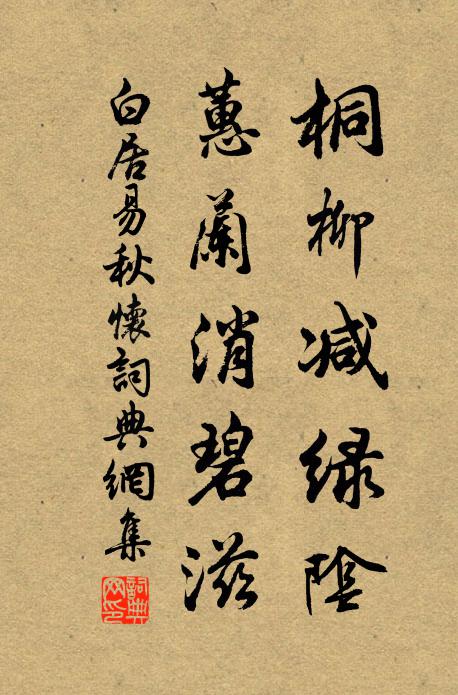 桐柳减绿陰
蕙蘭消碧滋
白居易秋懷詞典網集
詞典網印